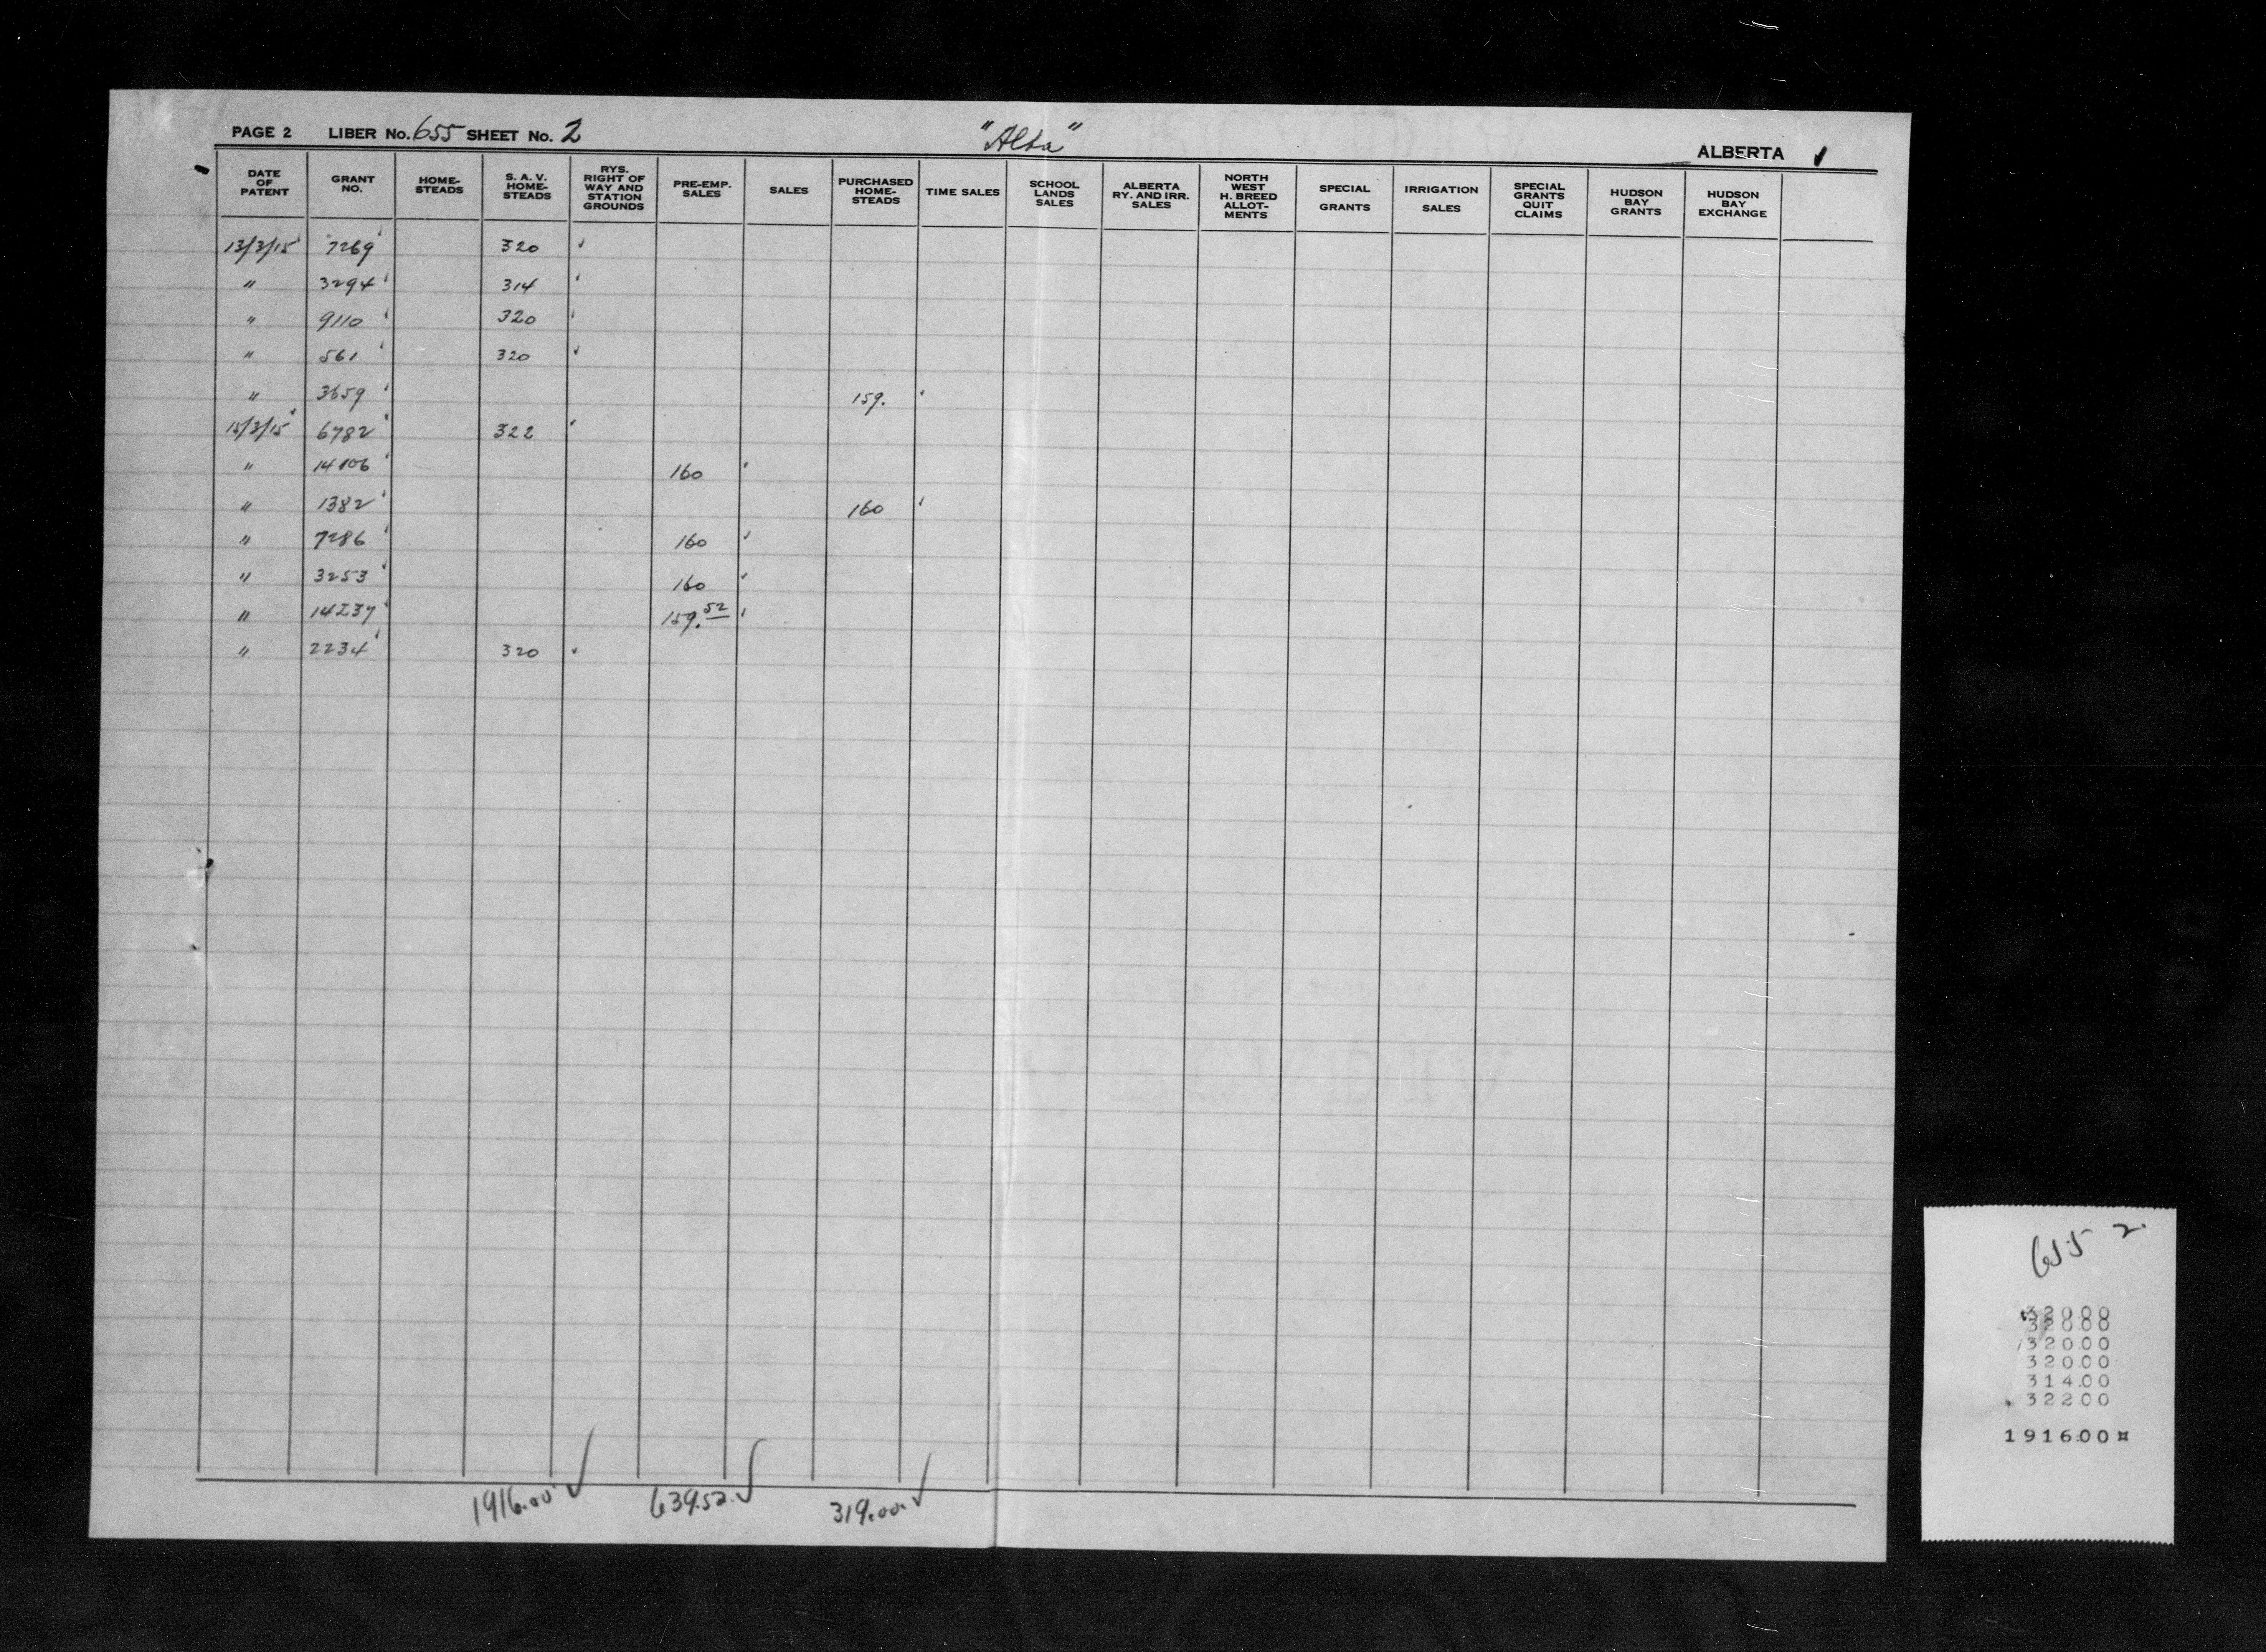 PAGE 2 LIBER No. 655 SHEET No. 2 "Alta" ALBERTA
DATE OF PATENT GRANT NO. HOME-STEADS S. A. V. HOME-STEADS RYS. RIGHT OF WAY AND STATION GROUNDS PRE-EMP. SALES SALES PURCHASED HOME-STEADS TIME SALES SCHOOL LANDS SALES ALBERTA RY. AND IRR. SALES NORTH WEST H. BREED ALLOT-MENTS SPECIAL GRANTS IRRIGATION SALES SPECIAL GRANTS QUIT CLAIMS HUDSON BAY GRANTS HUDSON BAY EXCHANGE
13/3/15 7269 320
" 3294 314
" 9110 320
" 561 320
" 3659 159.
15/3/15 6782 322
" 14106 160
" 1382 160
" 7286 160
" 3253 160
" 14237 159.52
" 2234 320
1916.00 639.52 319.00
655 2
320.00
320.00
320.00
320.00
314.00
322.00
1916.00¤